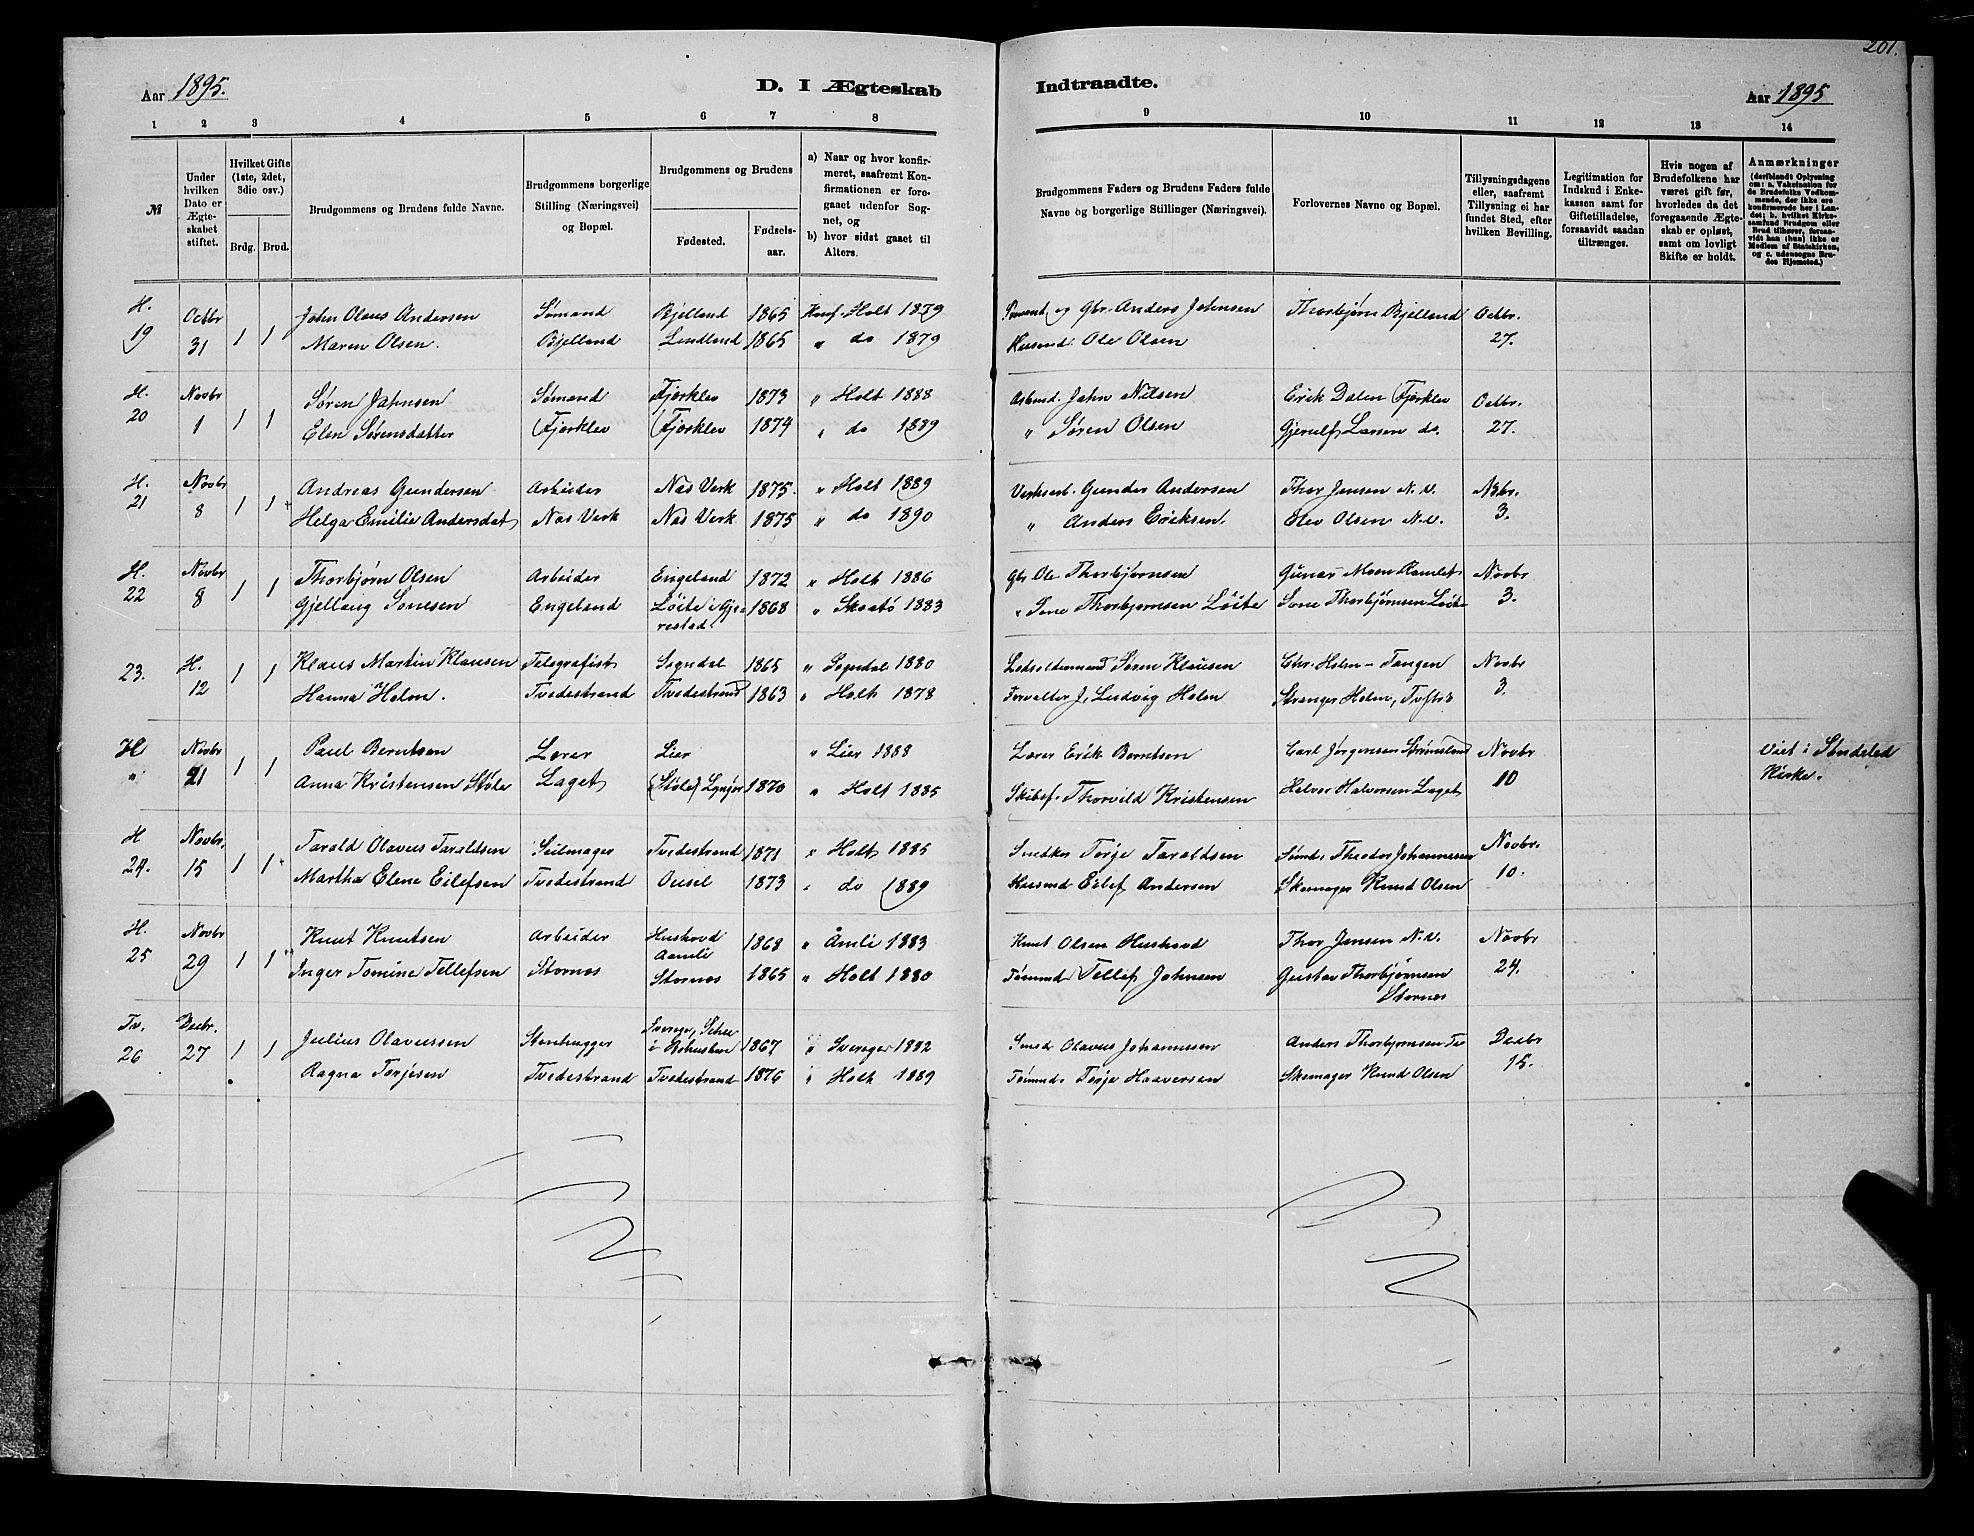 201.
Aar 1895.
D. I Ægteskab Indtraadte.
Aar 1895
1 2 3 4 5 6 7 8 9 10 11 12 13 14
№
Under hvilken Dato er Ægteskabet stiftet.
Hvilket Gifte (1ste, 2det, 3die osv.)
Brdg. Brud.
Brudgommens og Brudens fulde Navne.
Brudgommens borgerlige Stilling (Næringsvei) og Bopæl.
Brudgommens og Brudens
Fødested. Fødselsaar.
a) Naar og hvor konfirmeret, saafremt Konfirmationen er foregaaet udenfor Sognet, og
b) hvor sidst gaaet til Alters.
Brudgommens Faders og Brudens Faders fulde Navne og borgerlige Stillinger (Næringsvei).
Forlovernes Navne og Bopæl.
Tillysningsdagene eller, saafremt Tillysning ei har fundet Sted, efter hvilken Bevilling.
Legitimation for Indskud i Enkekassen samt for Giftetilladelse, forsaavidt saadan tiltrænges.
Hvis nogen af Brudefolkene har været gift før, hvorledes da det foregaaende Ægteskab er opløst, samt om lovligt Skifte er holdt.
Anmærkninger (deriblandt Oplysning om: a. Vakcination for de Brudefolks Vedkommende, der ikke ere konfirmerede her i Landet; b. hvilket Kirkesamfund Brudgom eller Brud tilhører, forsaavidt han (hun) ikke er Medlem af Statskirken, og c. udensogns Brudes Hjemsted.)
H. Octbr John Olaus Andersen Sømand Bjelland 1865 Konf. Holt 1879 og Gbr. Anders Johnsen Thorbjørn Bjelland Octbr.
19 31 1 1 Maren Olsen. Bjelland Lindland 1865 " do 1879 Husmd. Ole Olsen 27.
H. Novbr Søren Johnsen Sømand Fjærklev 1873 " Holt 1888 Arbmd. John Nilsen Erik Dalen Fjærklev Octbr.
20 1 1 1 Elen Sørensdatter Fjærklev Fjærklev 1874 " do 1889 " Søren Olsen Gjerulf Larsen do. 27.
H. Novbr Andreas Gundersen Arbeider Næs Verk 1875. " Holt 1889 Verksarb. Gunder Andersen Thor Jensen N. V. Nbr.
21 8 1 1 Helga Emilie Andersdat Næs Verk Næs Verk 1875 " do 1890 " Anders Eriksen. Elev Olsen N.V. 3.
H. Novbr Thorbjørn Olsen Arbeider Engeland 1872 " Holt 1886 Gbr. Ole Thorbjørnsen Gunar Moen Ramlet Novbr
22 8 1 1 Gjellaug Sonesen Engeland Løite i Gjerestad 1868 " Skaatø 1883 " Sone Thorbjørnsen Løite Sone Thorbjørnsen Løite 3.
23. H. 12 1 1 Klaus Martin Klausen Telegrafist Sogndal 1865 " Sogndal 1880 Ledsoldermand Søren Klausen Chr. Holm - Tangen Novbr
Hanna Holm. Tvedestrand Tvedestrand 1863 " Holt 1878 Forvalter J. Ludvig Holm Stranger Holm, 3.
H Novbr Paul Berntsen Lærer Lier " Lier 1888 Lærer Erik Berntsen Carl Jørgensen Novbr Viet i Søndeled
" 21 1 1 Anna Kristensen Støle Laget (Støle) Lyngør 1870 " Holt 1885 Skibsf. Thorvild Kristensen Halvor Halvorsen Laget 10 Kirke.
H Novbr. Tarald Olavus Taraldsen Seilmager Tvedestrand 1871 " Holt 1885 Snedker Terje Taraldsen Sømd. Theodor Johannessen Novbr.
24. 15 1 1 Martha Elene Eilefsen Tvedestrand Ousel 1873 " do 1889 Husmd Eilef Andersen Skomager Knud Olsen 10.
H. Novbr Knut Knutsen Arbeider Huskovd Aamli 1868 " Åmli 1883 Knut Olsen Huskovd Thor Jensen N. V. Novbr
25 29 1 1 Inger Tomine Tellefsen Stornes Stornes 1865 " Holt 1880 Tømmd Tellef Johnsen Gustav Thorbjørnsen Stornes 24.
Tv. Decbr. Julius Olavussen Stenhugger Sverige, i Bohuslen 1867 " Sverige 1882 Smed Olavus Johannesen Anders Thorbjørnsen Tv Decbr
26 27 1 1 Ragna Terjesen Tvedestrand Tvedestrand 1876 " Holt 1889 Tømmd. Terje Haaversen Skomager Knud Olsen 15.